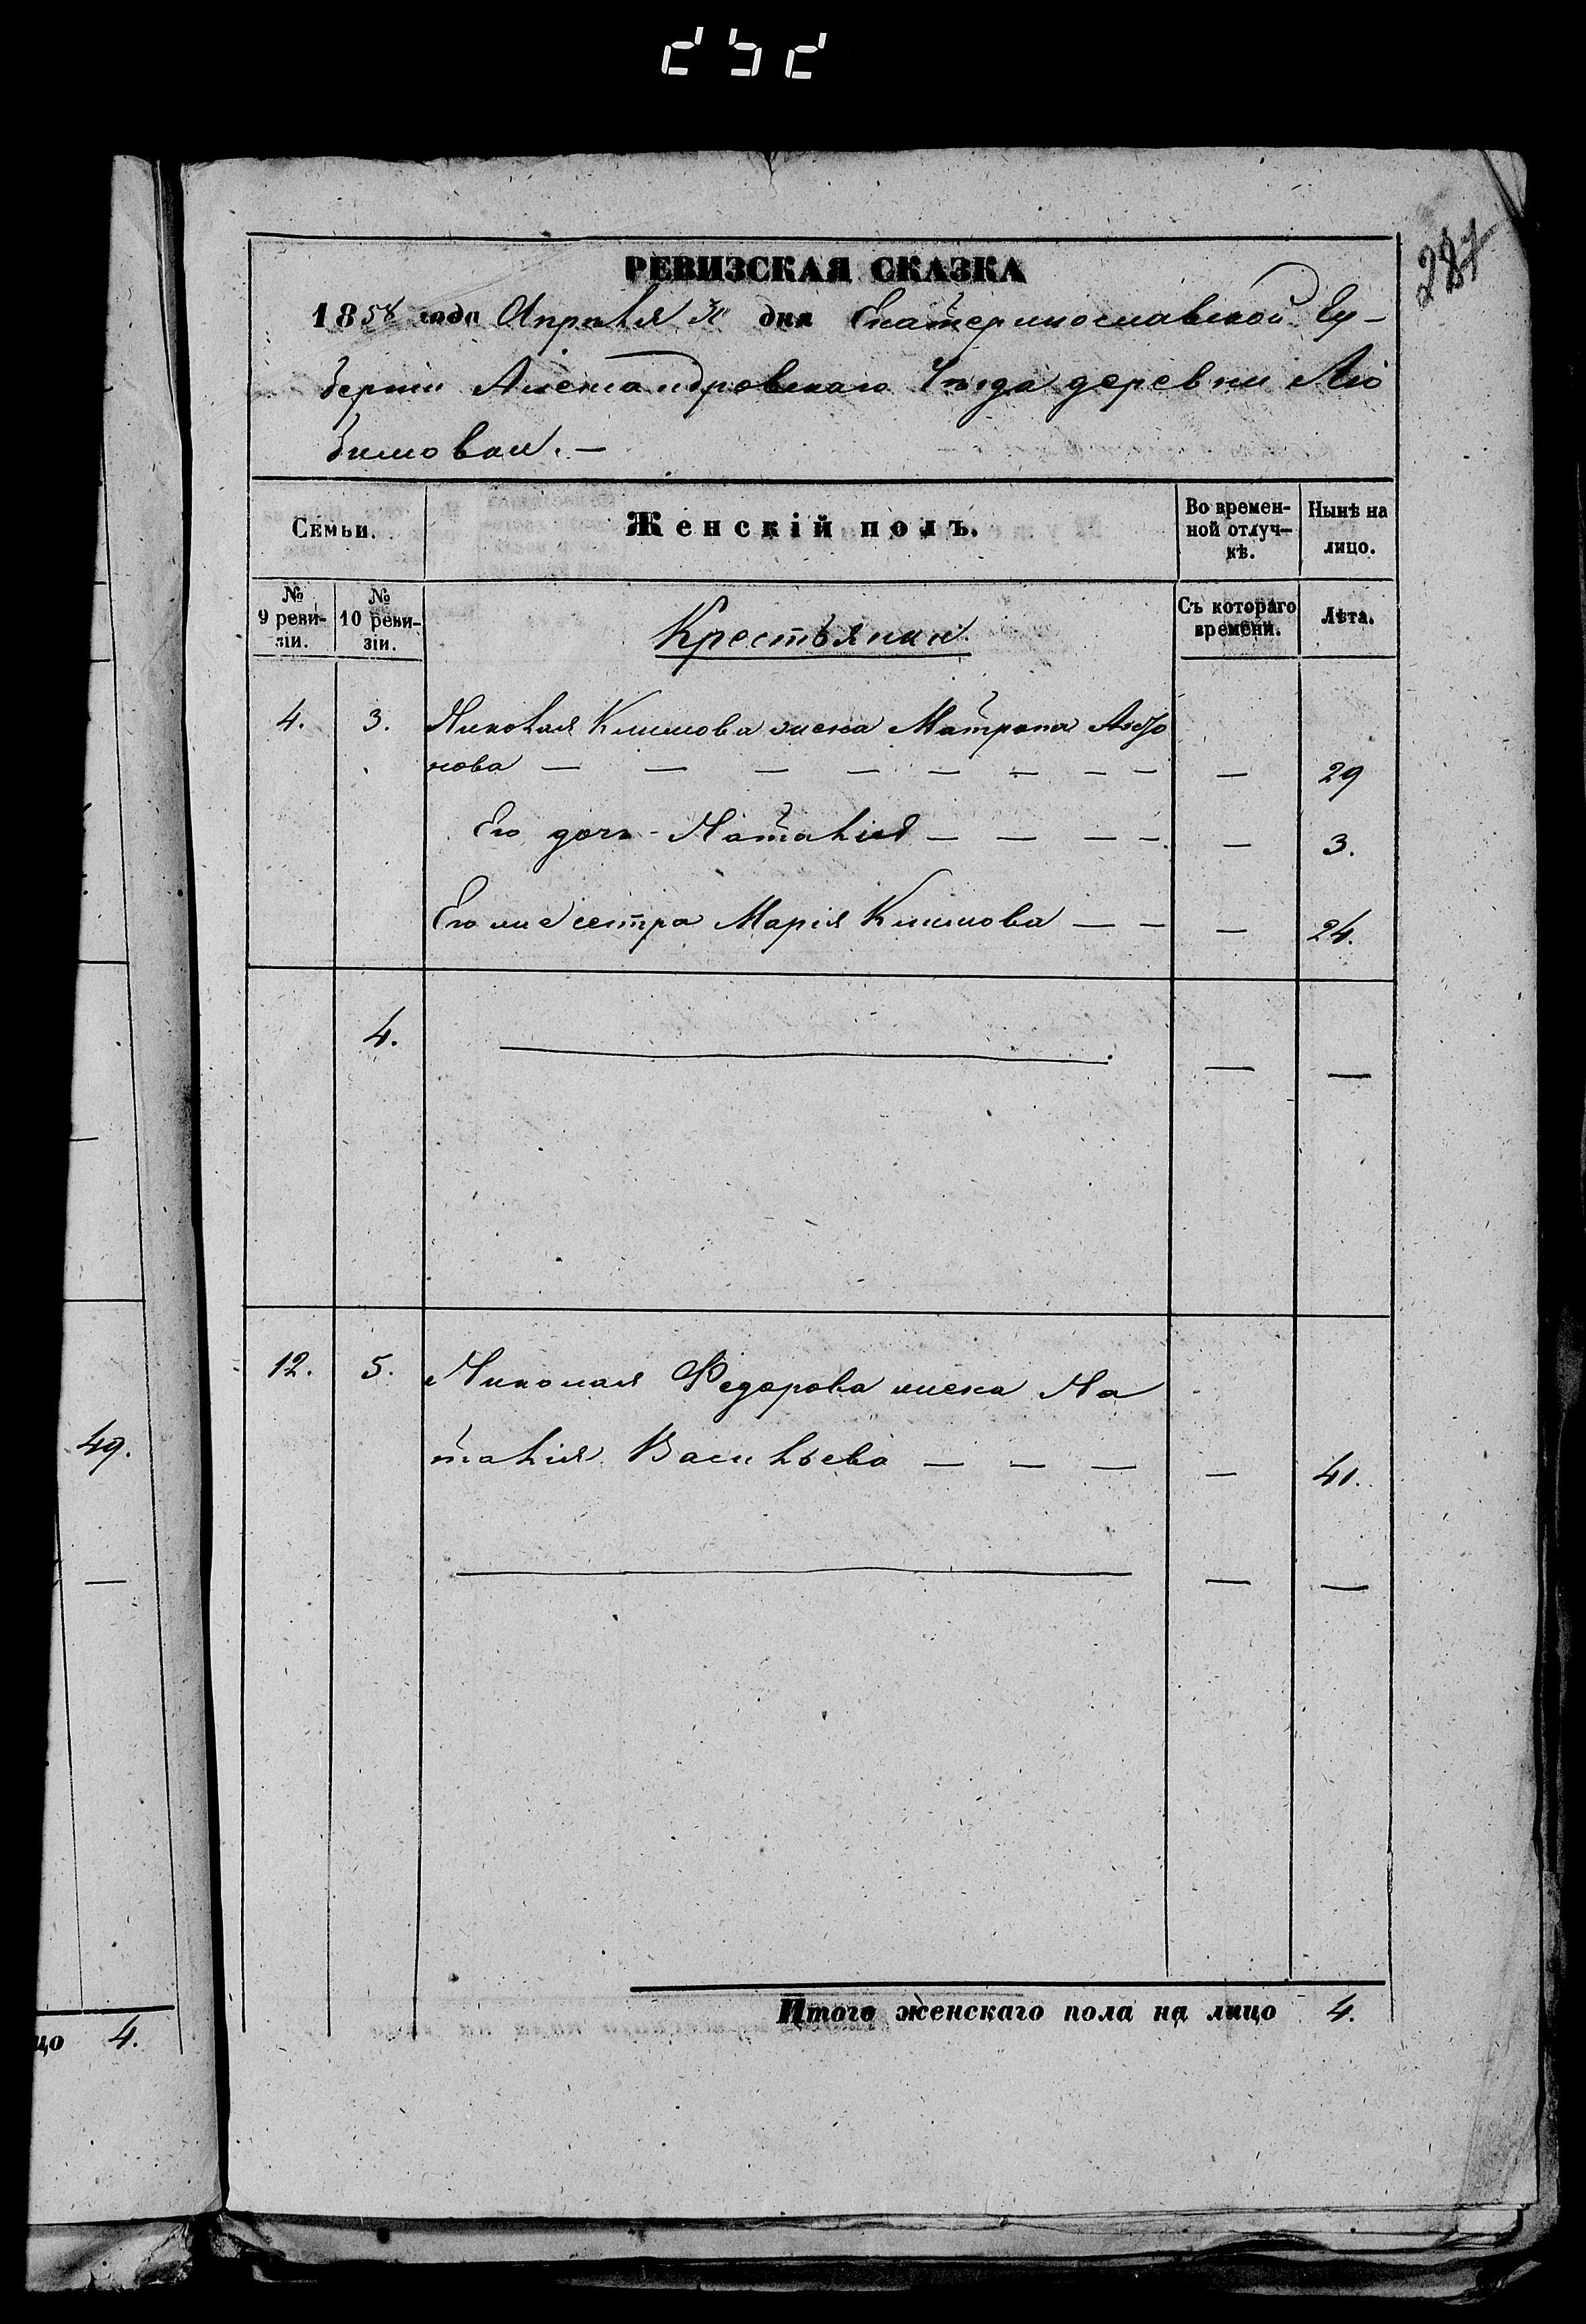 287
РЕВИЗСКАЯ СКАЗКА
1858 года Апреля дня Екатеринославской Гу-
берніи Александровскаго Уѣзда деревни Лю
бимовки. —
Семьи.
Женскій полъ.
Во времен-
ной отлуч-
кѣ.
Нынѣ на
лицо.
№
9 реви-
зіи.
№
10 реви-
зіи.
Крестьянки
Съ котораго
времени.
Лѣта.
4. 3. Николая Климова жена Матрона
нова — — — — — — — — — 29
Его дочь - Наталия — — — — — 3.
Его же сестра Марія Климова — — — 24.
4. — — —
12. 5. Николая Федорова жена На
талія Васильева — — — — 41.
— — —
Итого женскаго пола на лицо 4.
49.
—
цо 4.